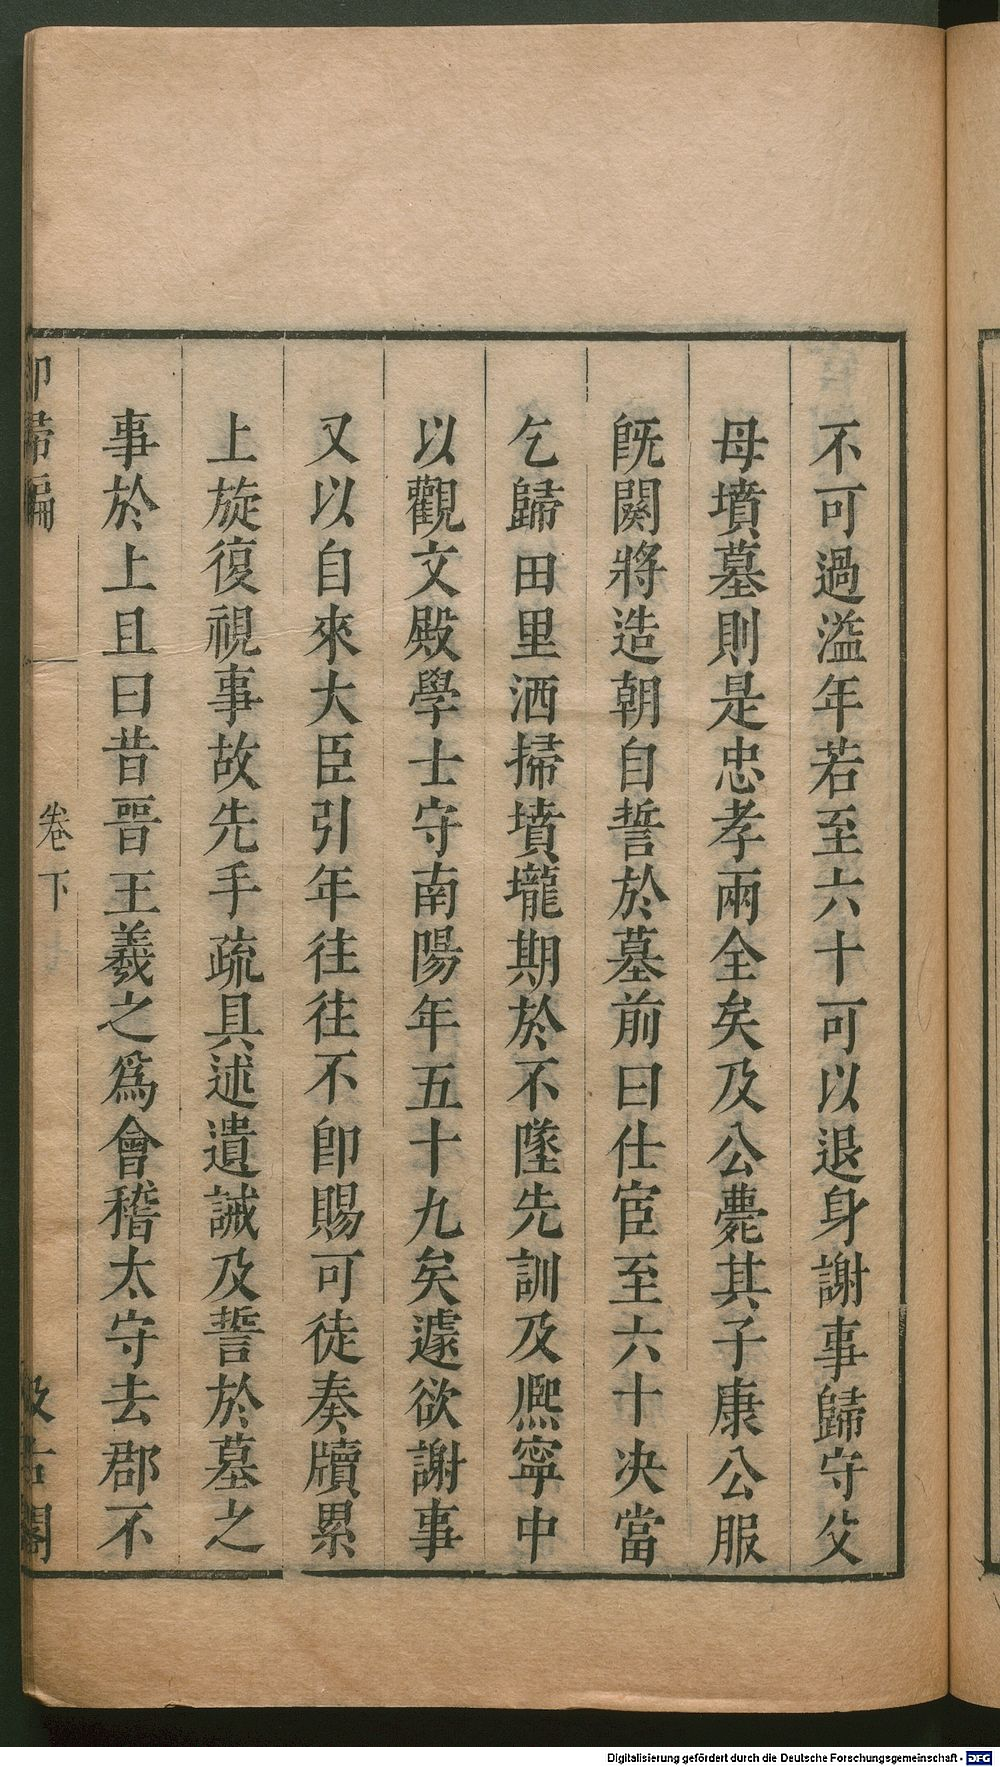 不可過溢年若至六十可以退身謝事歸守父
母墳墓則是忠孝兩全矣及公薨其子康公服
旣闋將造朝自誓於墓前曰仕宦至六十决當
乞歸田里洒掃墳壠期於不墜先訓及熈寧中
以觀文殿學士守南陽年五十九矣遽欲謝事
又以自來大臣引年往往不卽賜可徒奏牘累
上旋復視事故先手疏具述遺誡及誓於墓之
事於上且曰昔晉王羲之爲會稽太守去郡不
卻掃編
卷下
汲古閣
Digitalisierung gefördert durch die Deutsche Forschungsgemeinschaft - DFG